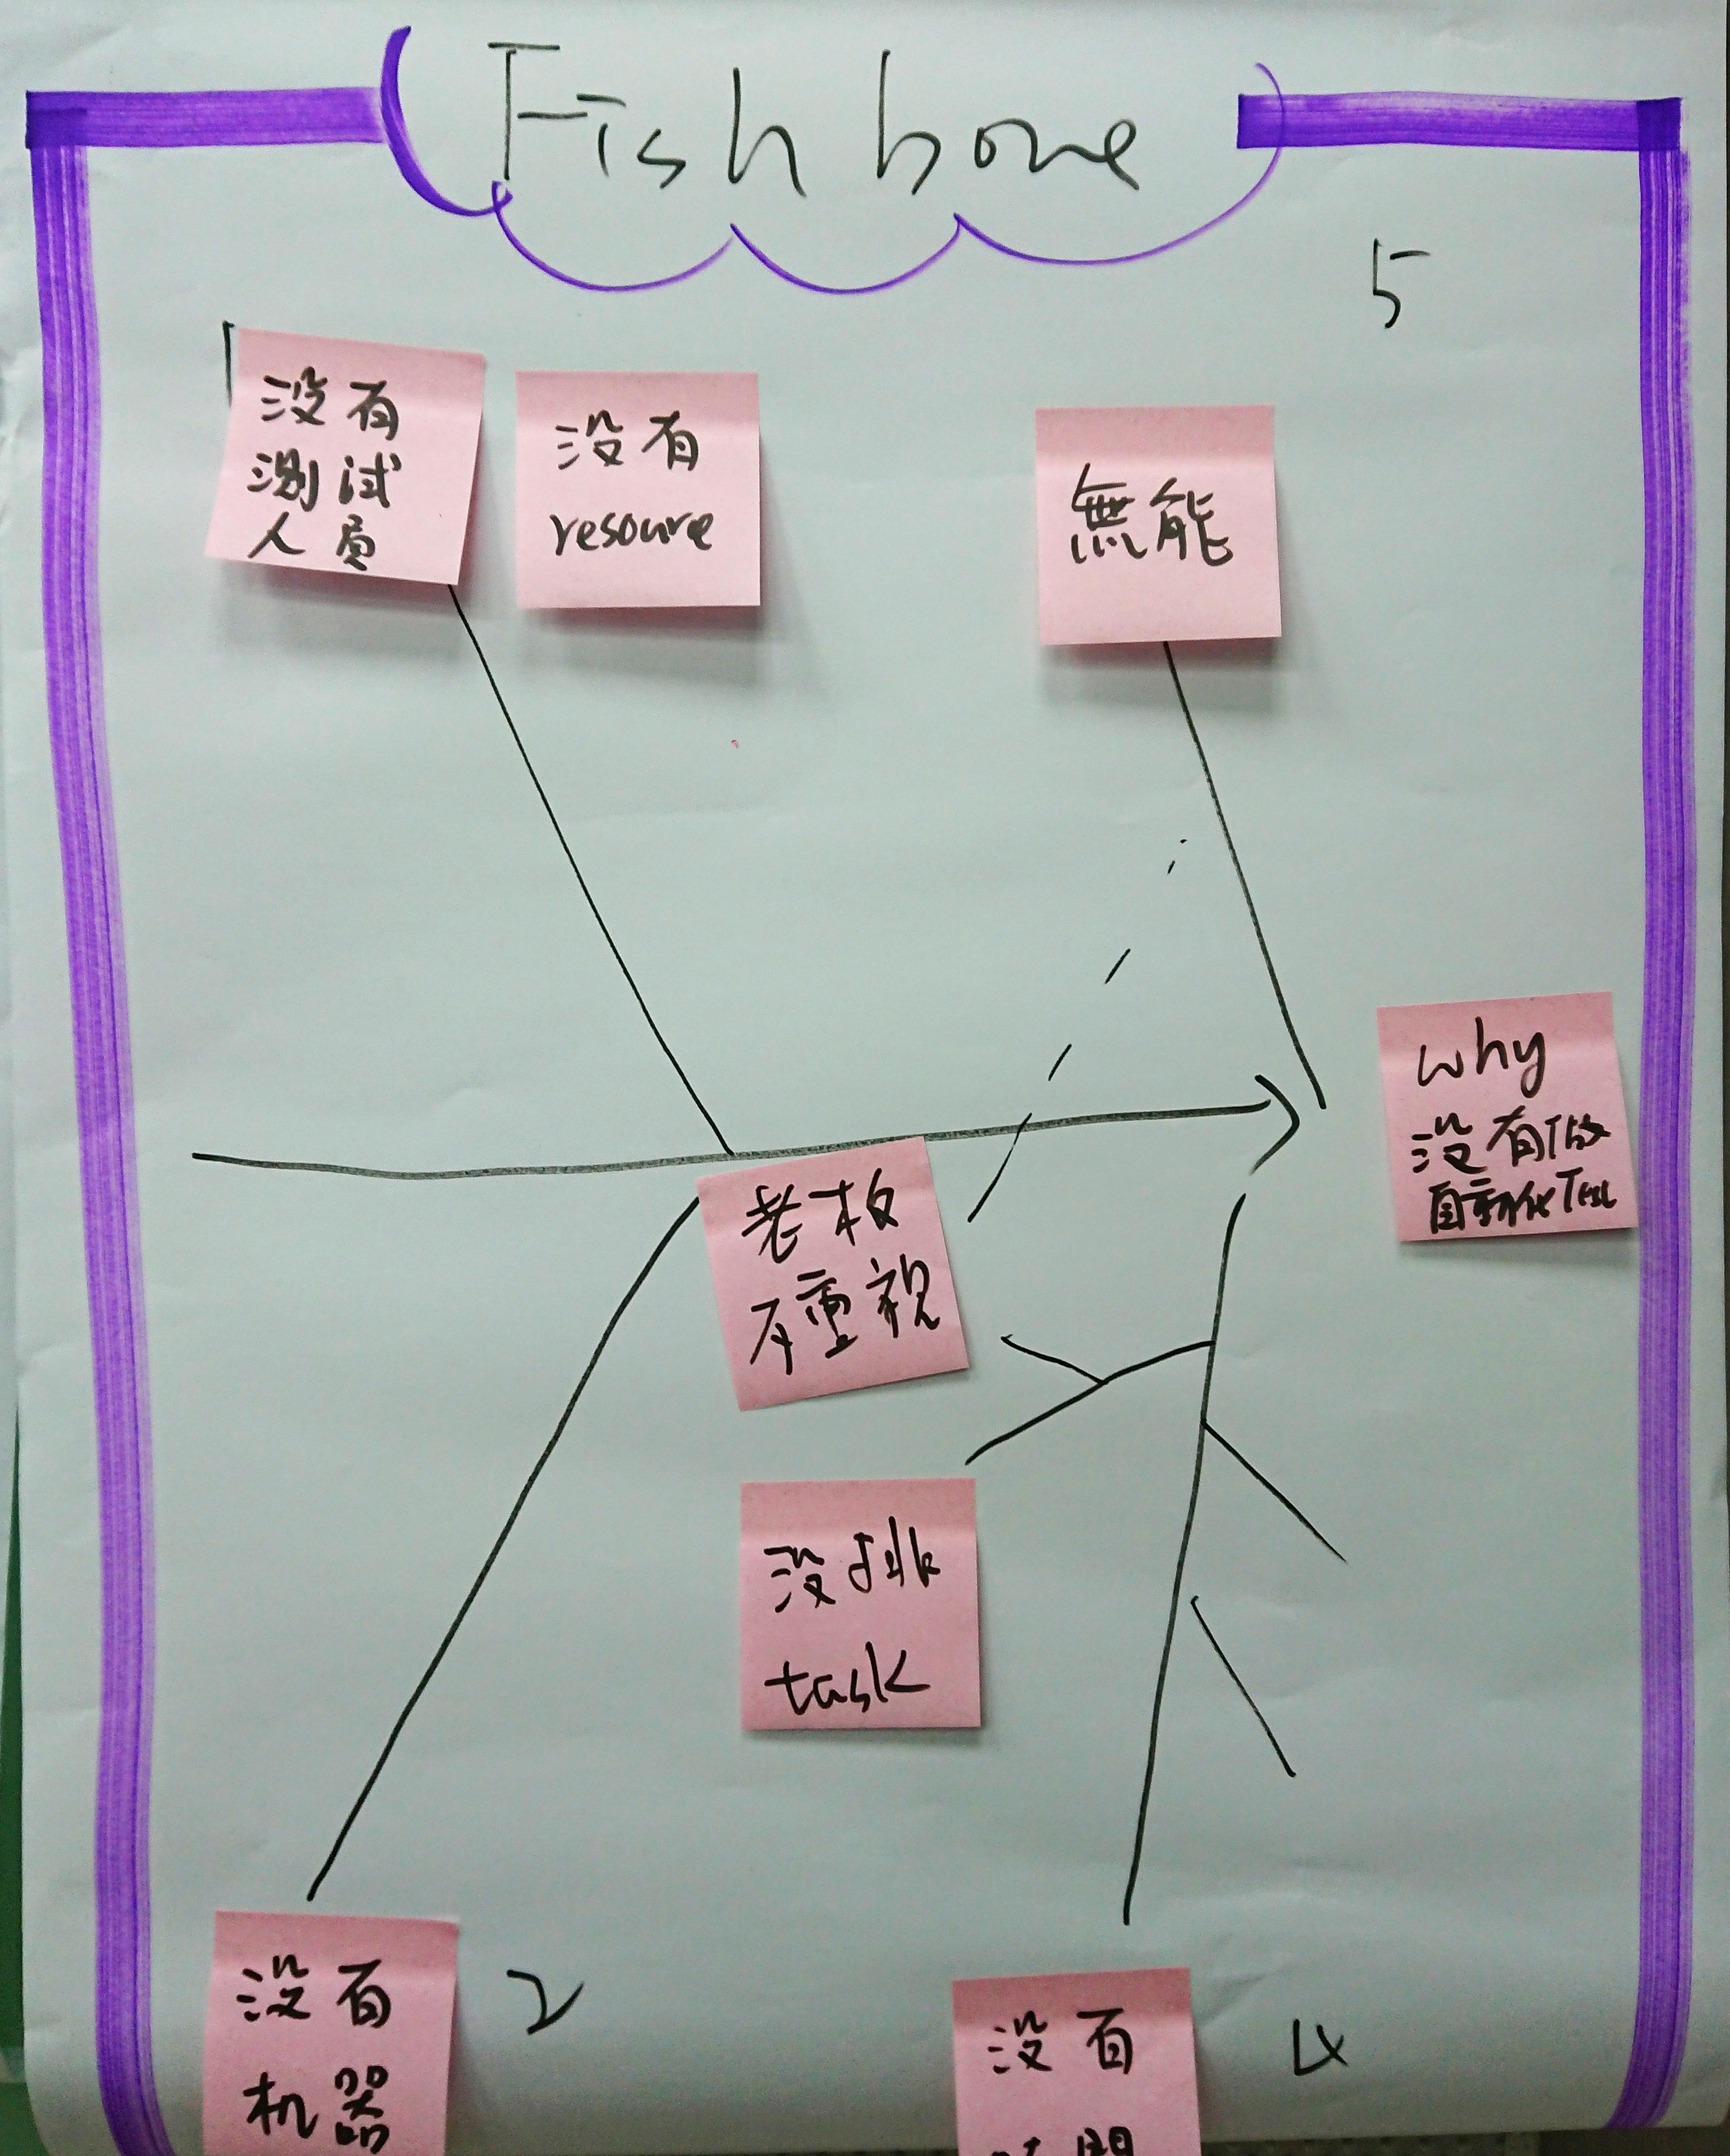 Fish bone
5
没有
测试
人员
没有
resoure
無能
why
没有做
自動化Test
老板
不重視
没排
task
没有
机器
2
没有
時間
4